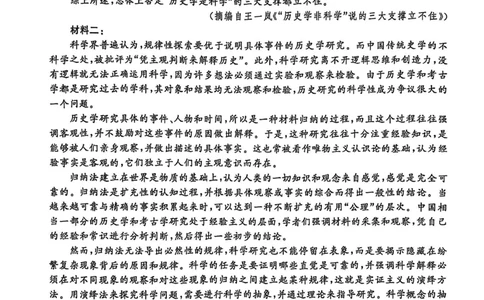 综上所述,总体上否定“历史学是科学”的三大支撑都立不住。
(摘编自王一岚《“历史学非科学”说的三大支撑立不住》)
材料二:
科学界普遍认为,规律性探索要优于说明具体事件的历史学研究。而中国传统史学的不
科学之处,被批评为“凭主观判断来解释历史”。此外,科学研究离不开逻辑思维和创造力,没
有逻辑就无法正确运用科学,因为许多想法必须通过实验和观察来检验。由于历史学和考古
学都是研究过去的学科,其对象和结果均无法观察和检验,历史研究的科学性成为争议很大的
一个问题。
历史学研究具体的事件、人物和时间,所以是一种材料归纳的过程,而且这个过程往往强
调客观性,并不鼓励对这些事件的原因做出解释。于是,这种研究往往十分注重经验知识,是
能够被人们亲身观察,并做出描述的具体事实。这也常被看作唯物主义认识论的基础,认为经
验事实是客观的,它们独立于人们的主观意识而存在。
归纳法建立在世界是物质的基础上,认为人类的一切知识和观念来自感觉,感觉是完全可
靠的。归纳法是扩充性的认知过程,并根据具体观察或事实的综合而得出一般性的结论。当
越来越可靠与精确的事实积累起来时,可以达到一种不断扩充的有用“公理”的层次。中国相
当一部分的历史学和考古学研究处于经验主义的层面,学者们强调材料的采集和观察,凭自己
的经验和常识进行分析判断,然后得出一些初步的结论。
然而,归纳法无法导出必然性的规律,科学研究也不能停留在表象,而是要揭示隐藏在纷
繁复杂现象背后的原因和规律。科学的任务是要证明哪些直觉是可靠的,并强调科学解释必
须在对不同现象的观察和对这些现象的归纳之间建立起某种规律,这就是实证主义的演绎方
法。用演绎法来探究科学问题,需要进行科学的抽象,并通过理论来指导研究。科学概念的抽